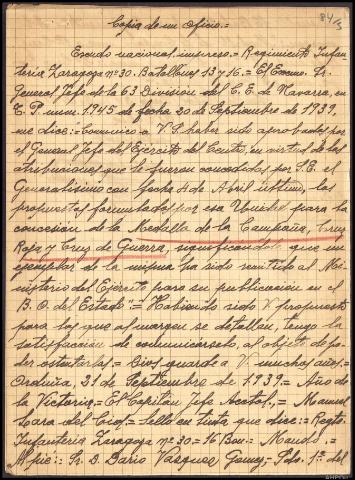 84/3
Copia de un Oficio.=
Escudo nacional impreso.= Regimiento Infan-
teria Zaragoza nº 30. Batallones 13 y 16.= El Excmo. Sr.
General Jefe de la 63 Division del C. E. de Navarra, en
T. P. num. 1945 de fecha 20 de Septiembre de 1939,
me dice:= Comunico a V. S. haber sido aprobados por
el General Jefe del Ejercito del Centro, en virtud de las
atribuciones que le fueron concedidas por S. E. el
Generalisimo con fecha de Abril ultimo, las
propuestas formuladas por esa Unidad para la
concesion de la Medalla de la Campaña, Cruz
Roja y Cruz de Guerra, significandole que un
ejemplar de la misma ha sido remitido al Mi-
nisterio del Ejercito para su publicacion en el
B. O. del Estado"= Habiendo sido V. propuesto
para las que al margen se detallan, tengo la
satisfaccion de comunicarselo, al objeto de po-
der ostentarlas.= Dios guarde a V. muchos años.=
Orduña, 21 de Septiembre de 1939.= Año de
la Victoria.= El Capitan Jefe Acctal.,= Manuel
Lara del Cid,= Sello en tinta que dice:= Regto.
Infanteria Zaragoza nº 30.= 16 Bon.= Mando.=
Al pie:= Sr. D. Dario Vazquez Gomez,= Sdo. 1ª del
AHPCr